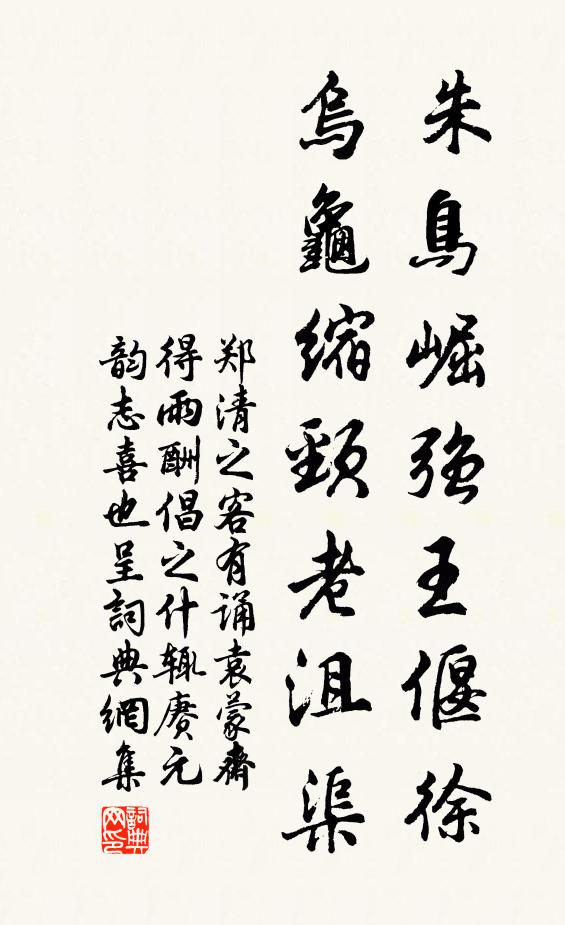 朱鳥崛強王偃徐
烏龜縮頸老沮渠
郑清之客有诵袁蒙齋
得雨酬倡之什辄赓元
韵志喜也呈詞典網集
詞典网印